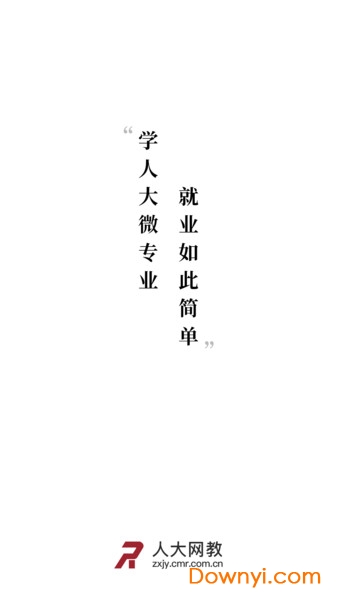 “学人大微专业
就业如此简单”
人大网教
zxjy.cmr.com.cn
Downyi.com